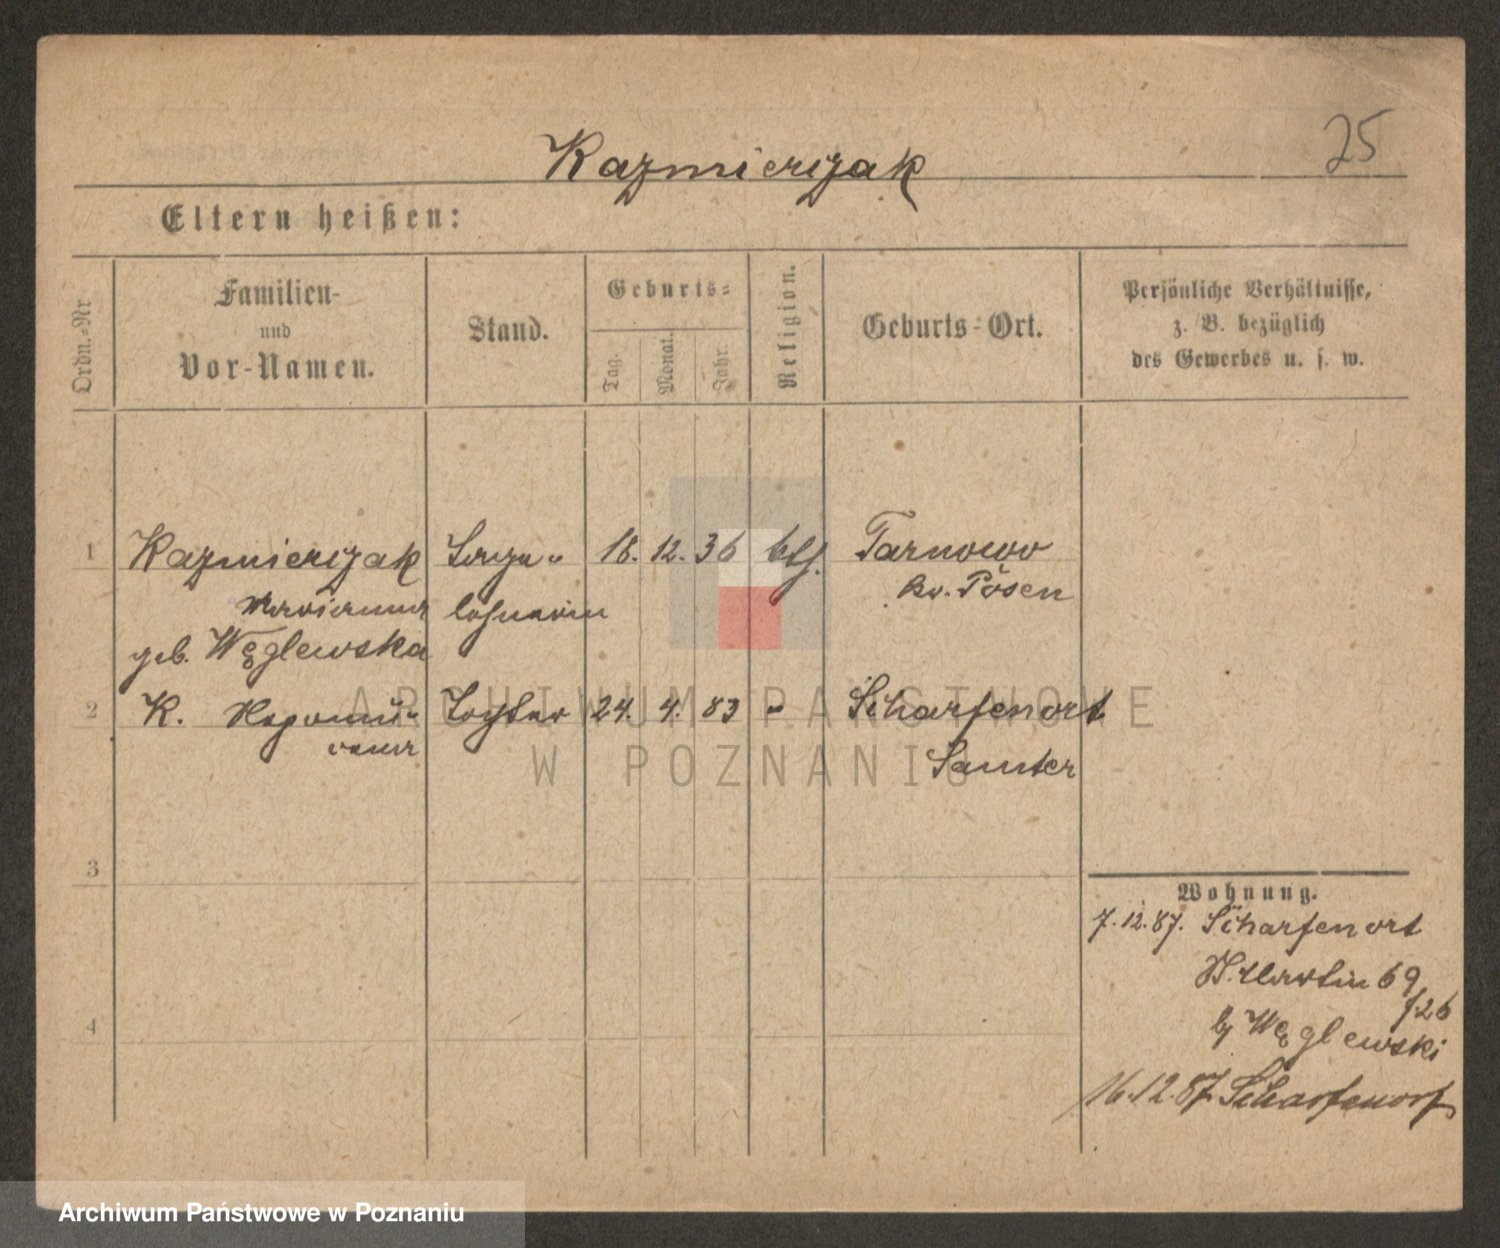 Kazmierczak
25
Eltern heißen:
Ordn.-Nr
Familien-
und
Vor-Namen.
Stand.
Geburts-
Tag.
Monat.
Jahr.
Religion.
Geburts-Ort.
Persönliche Verhältnisse,
z. B. bezüglich
des Gewerbes u. s. w.
1 Kazmierczak 18. 12. 36 kth. Tarnowo
Marianna Kr. Posen
geb. Węglewska
2 K. Nepomu- Tochter 24. 4. 83 " Scharfenort
cena Samter
3
4
Wohnung.
7.12.87. Scharfenort
St. Martin 69
b/ Węglewski
16.12.87 Scharfenort
ARCHIWUM PAŃSTWOWE
W POZNANIU
Archiwum Państwowe w Poznaniu